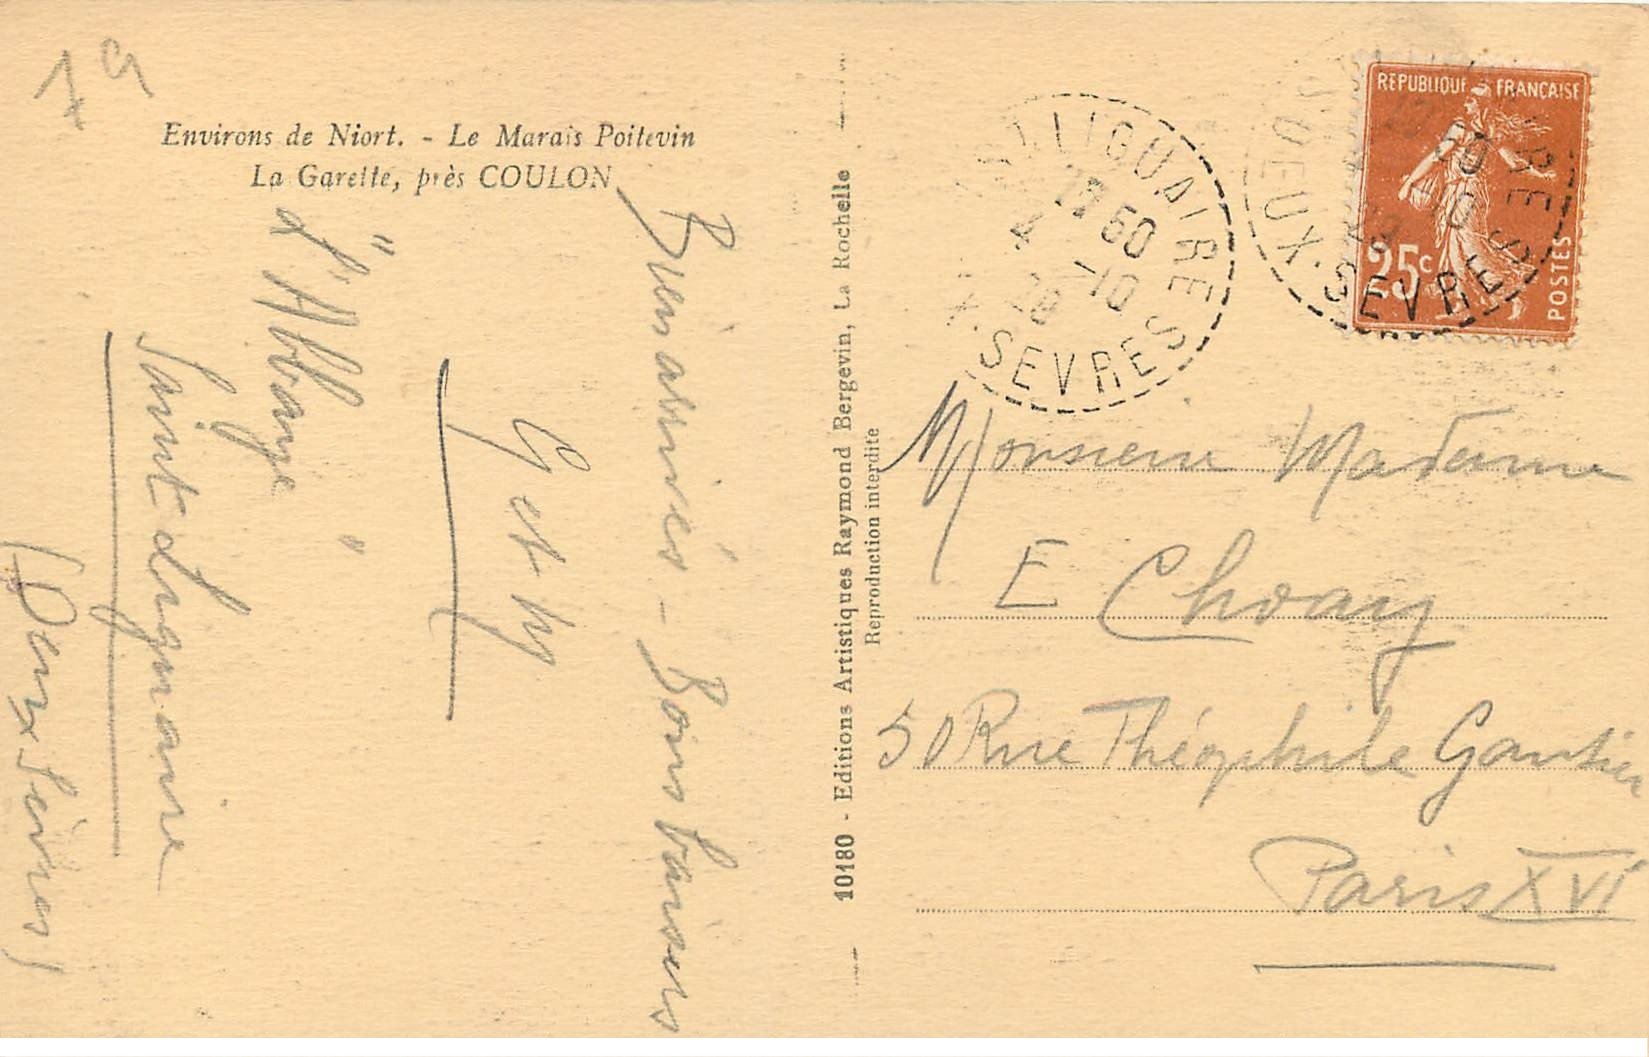 Environs de Niort. - Le Marais Poitevin
La Garette, près COULON
Bien arrivés - Bons baisers
G et M
"L'Abbaye"
Saint Ligouaire
(Deux Sèvres)
10180 - Editions Artistiques Raymond Bergevin, La Rochelle
Reproduction interdite
REPUBLIQUE FRANÇAISE
25c
POSTES
LIGUAIRE
17 50
4 -10
X. SEVRES
DEUX. SEVRES
Monsieur Madame
E Choay
50 Rue Théophile Gautier
Paris XVI